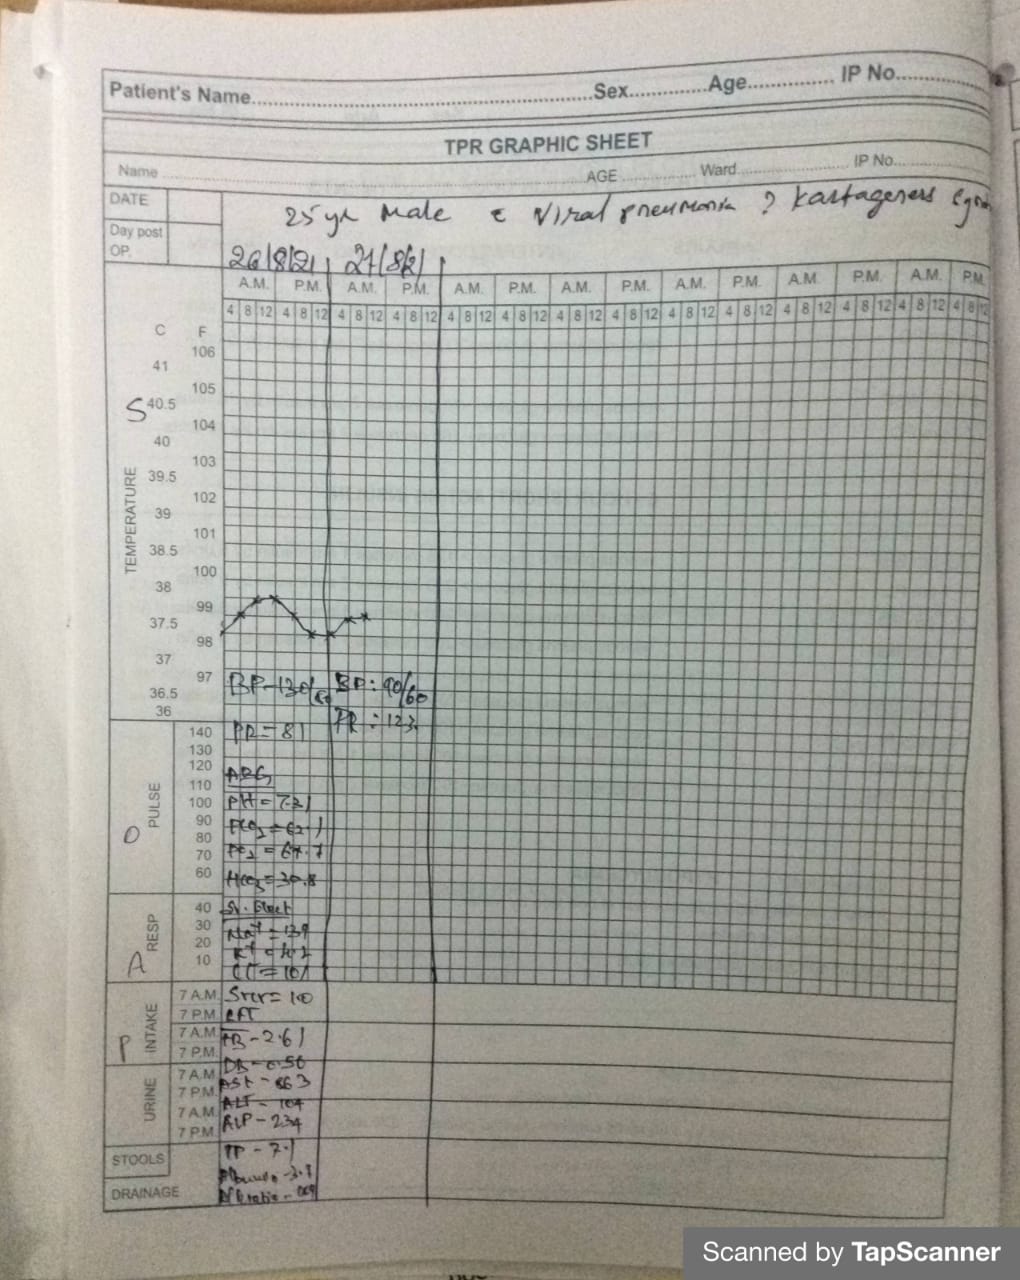 Patient's Name..........Sex..........Age..........IP No..........
TPR GRAPHIC SHEET
Name..........AGE..........Ward..........IP No..........
DATE
25 yr Male c Viral pneumonia ? Kartageners
Day post
OP.
26/8/21 27/8/21
A.M. P.M. A.M. P.M. A.M. P.M. A.M. P.M. A.M. P.M. A.M. P.M. A.M. P.M.
4 8 12 4 8 12 4 8 12 4 8 12 4 8 12 4 8 12 4 8 12 4 8 12 4 8 12 4 8 12 4 8 12 4 8 12 4 8 12 4 8 12
C F
106
41
105
S 40.5
104
40
103
39.5
102
39
101
38.5
100
38
99
37.5
98
37
97
36.5
36
TEMPERATURE
BP-130/80 BP: 90/60
PR = 81 PR : 123
140
130
120
110
100
90
80
70
60
O PULSE
ABG
PH = 7.31
PCO2 = 62.1
PO2 = 67.7
HCO3 = 30.8
40
30
20
10
A RESP
Sr. Elect
Na+ = 139
K+ = 4.2
Cl- = 101
P INTAKE
7 A.M. Srcr = 1.0
7 P.M. LFT
7 A.M. TB - 2.61
7 P.M.
DB - 0.56
URINE
7 A.M. AST - 863
7 P.M. ALT - 104
7 A.M. ALP - 234
7 P.M.
TP - 7.1
STOOLS
Albumin - 3.8
DRAINAGE
Scanned by TapScanner